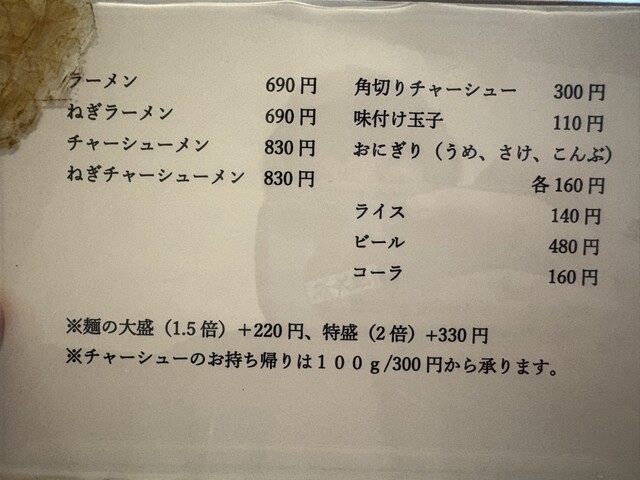 ラーメン 690円
ねぎラーメン 690円
チャーシューメン 830円
ねぎチャーシューメン 830円
角切りチャーシュー 300円
味付け玉子 110円
おにぎり（うめ、さけ、こんぶ）
各160円
ライス 140円
ビール 480円
コーラ 160円
※麺の大盛（1.5倍）＋220円、特盛（2倍）+330円
※チャーシューのお持ち帰りは１００ｇ/300円から承ります。